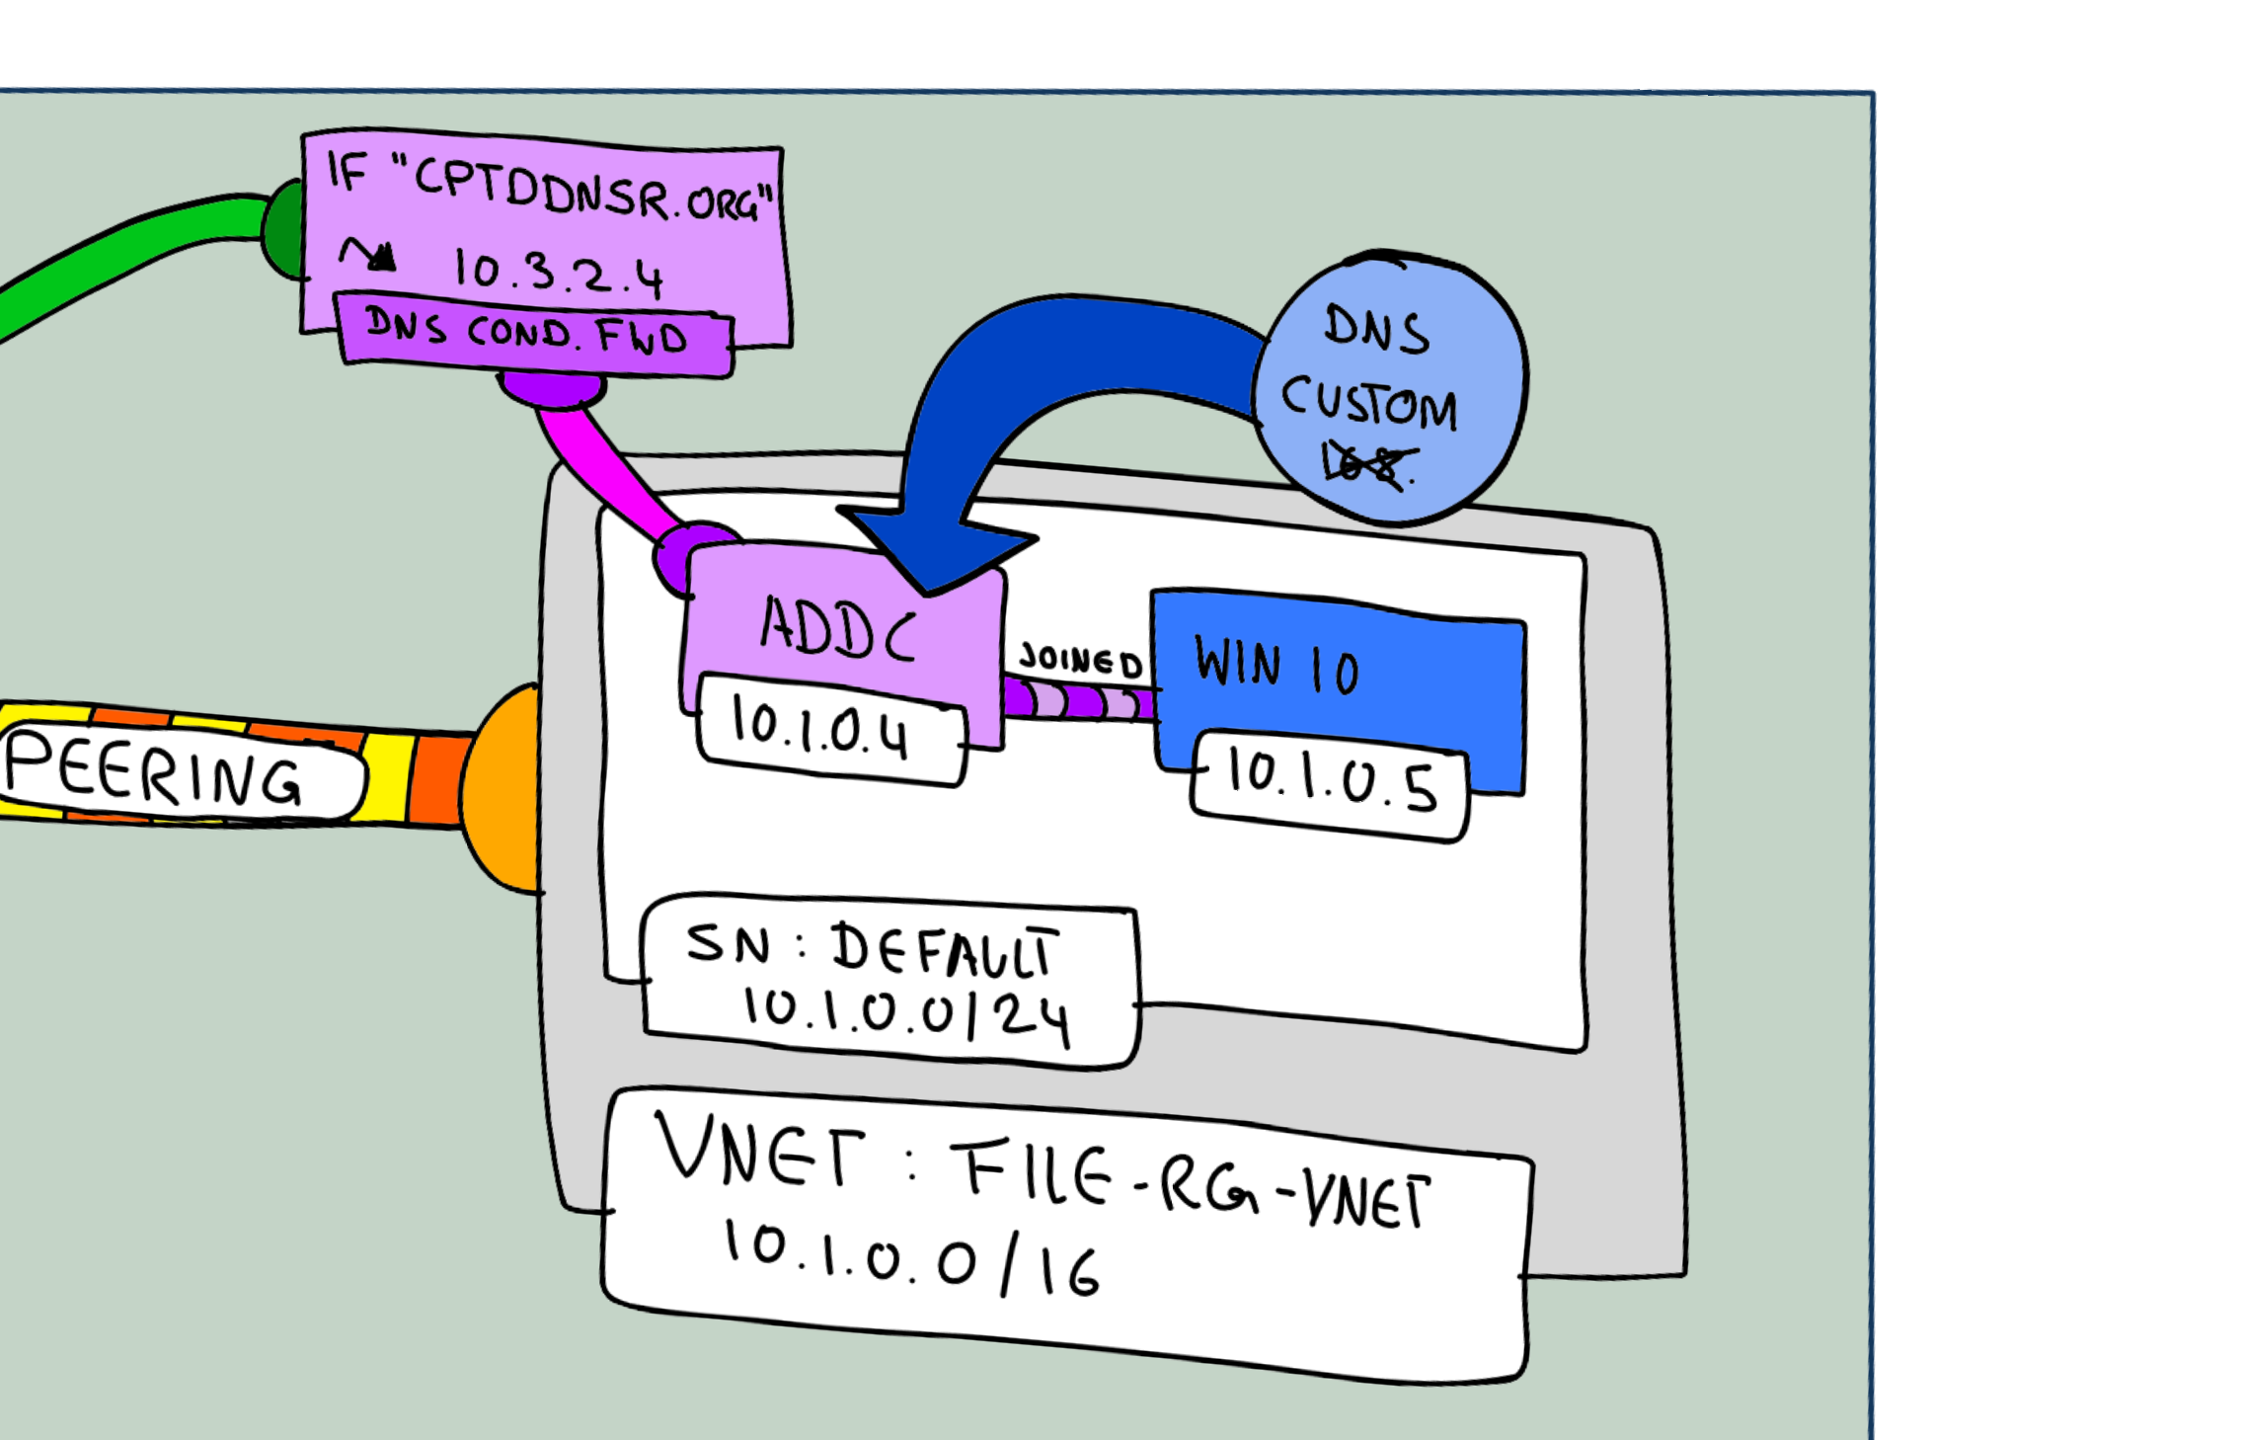 IF "CPTDDNSR.ORG"
10.3.2.4
DNS COND. FWD
DNS
CUSTOM
ADDC
10.1.0.4
JOINED
WIN 10
10.1.0.5
PEERING
SN : DEFAULT
10.1.0.0/24
VNET : FILE-RG-VNET
10.1.0.0/16